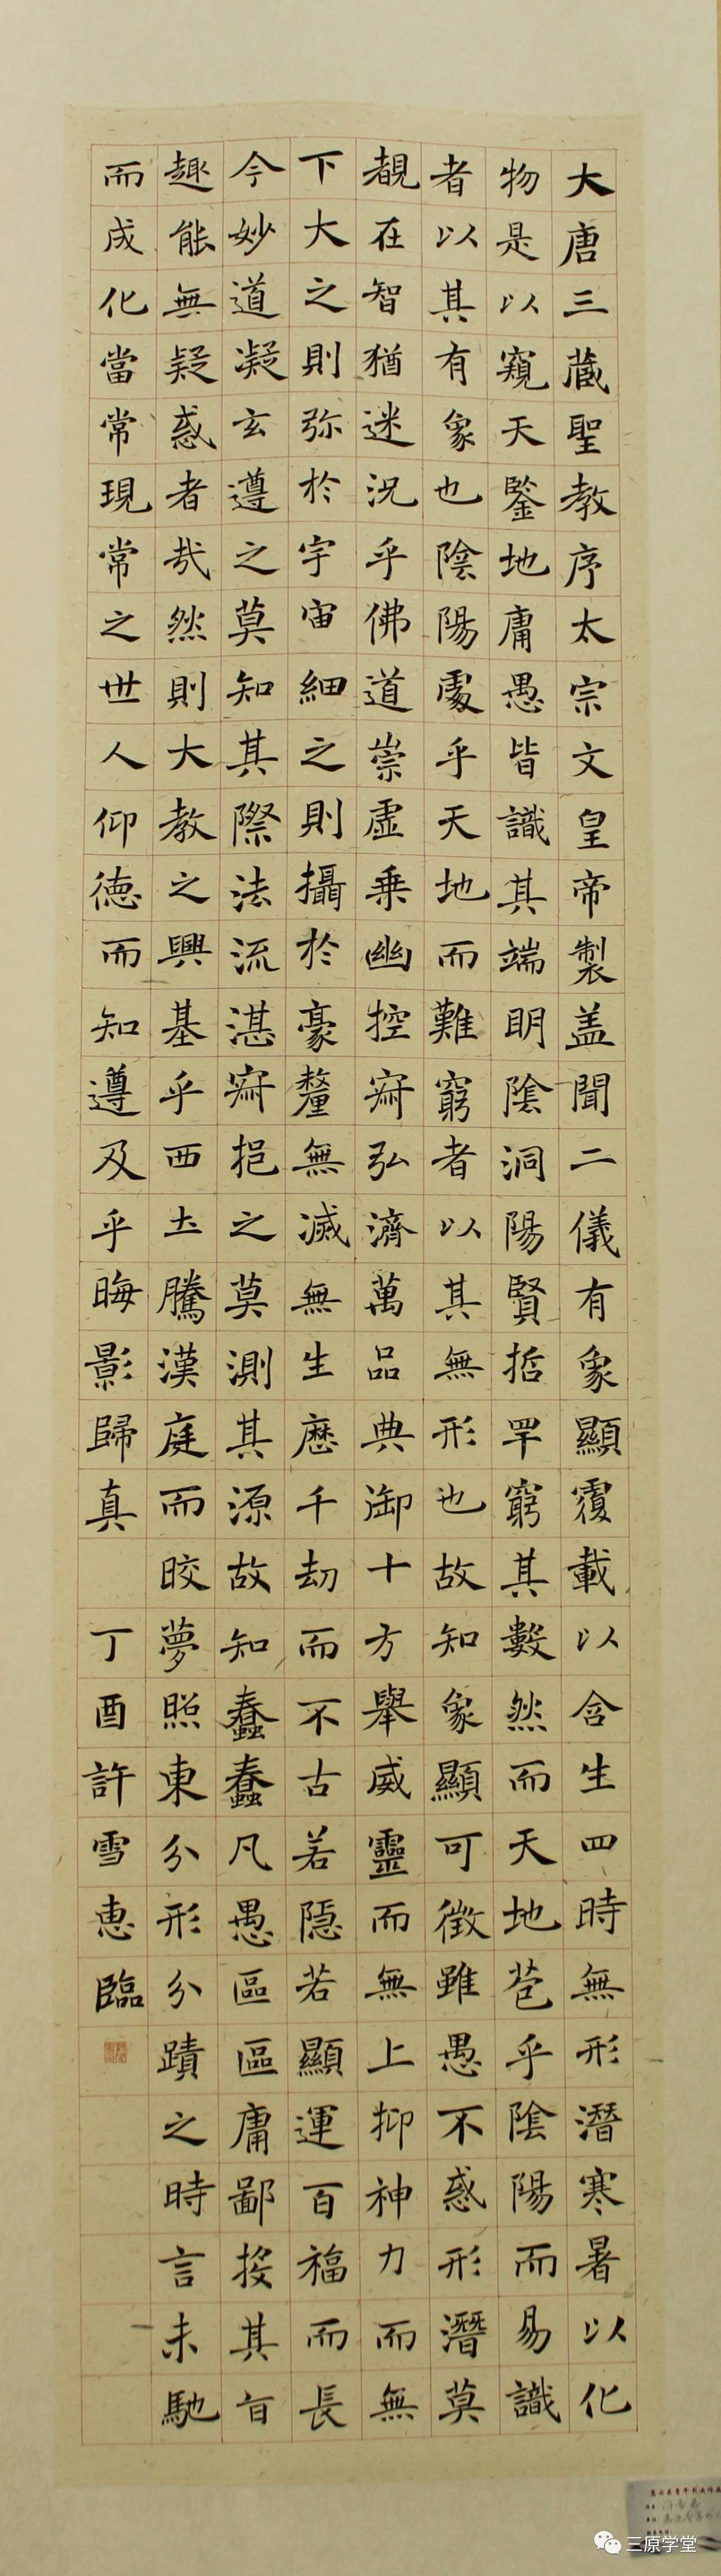 大唐三藏聖教序太宗文皇帝製盖聞二儀有象顯覆載以含生四時無形潛寒暑以化
物是以窺天鑒地庸愚皆識其端明陰洞陽賢哲罕窮其數然而天地苞乎陰陽而易識
者以其有象也陰陽處乎天地而難窮者以其無形也故知象顯可徵雖愚不惑形潛莫
覩在智猶迷況乎佛道崇虛乗幽控寂弘濟萬品典御十方舉威靈而無上抑神力而無
下大之則弥於宇宙細之則攝於豪釐無滅無生歷千劫而不古若隱若顯運百福而長
今妙道凝玄遵之莫知其際法流湛寂挹之莫測其源故知蠢蠢凡愚區區庸鄙投其旨
趣能無疑惑者哉然則大教之興基乎西土騰漢庭而皎夢照東分形分蹟之時言未馳
而成化當常現常之世人仰德而知遵及乎晦影歸真
丁酉許雪惠臨
三原学堂